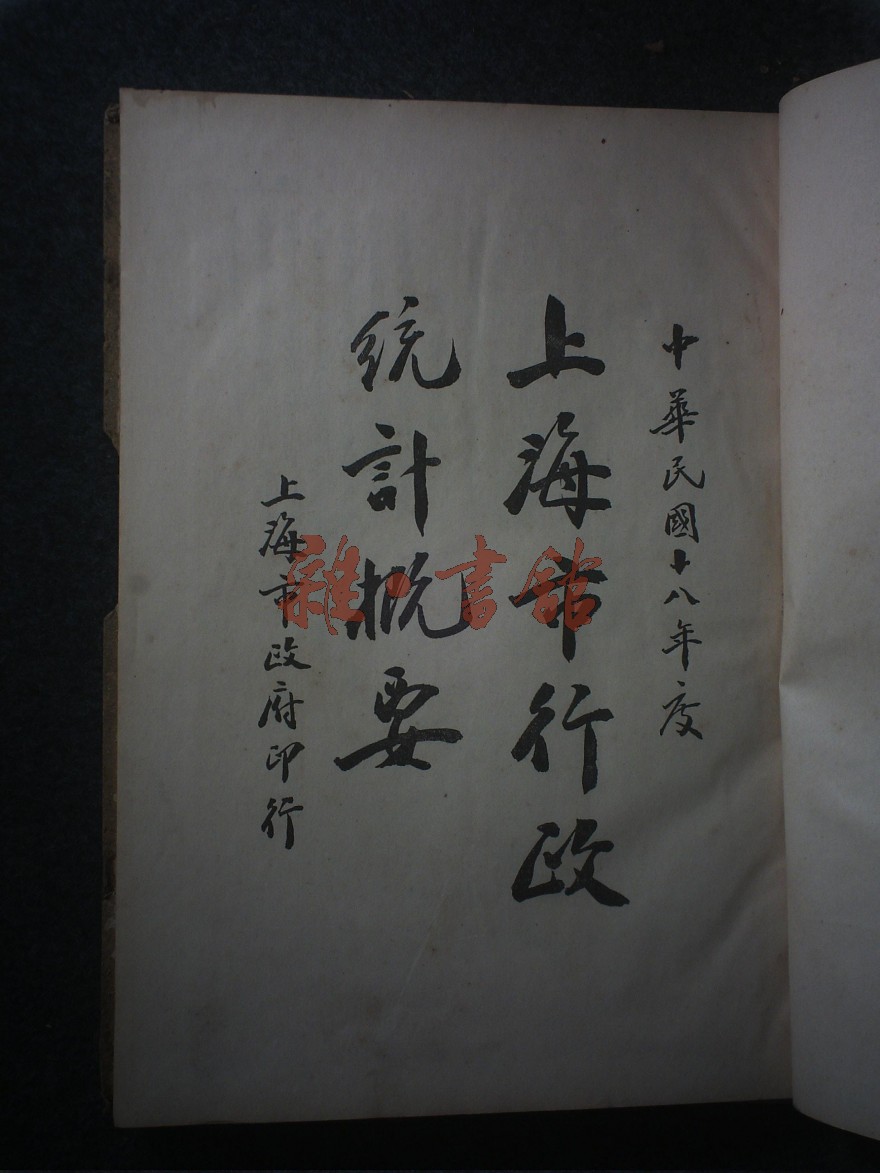 中華民國十八年度
上海市行政
統計概要
上海市政府印行
雜·書館